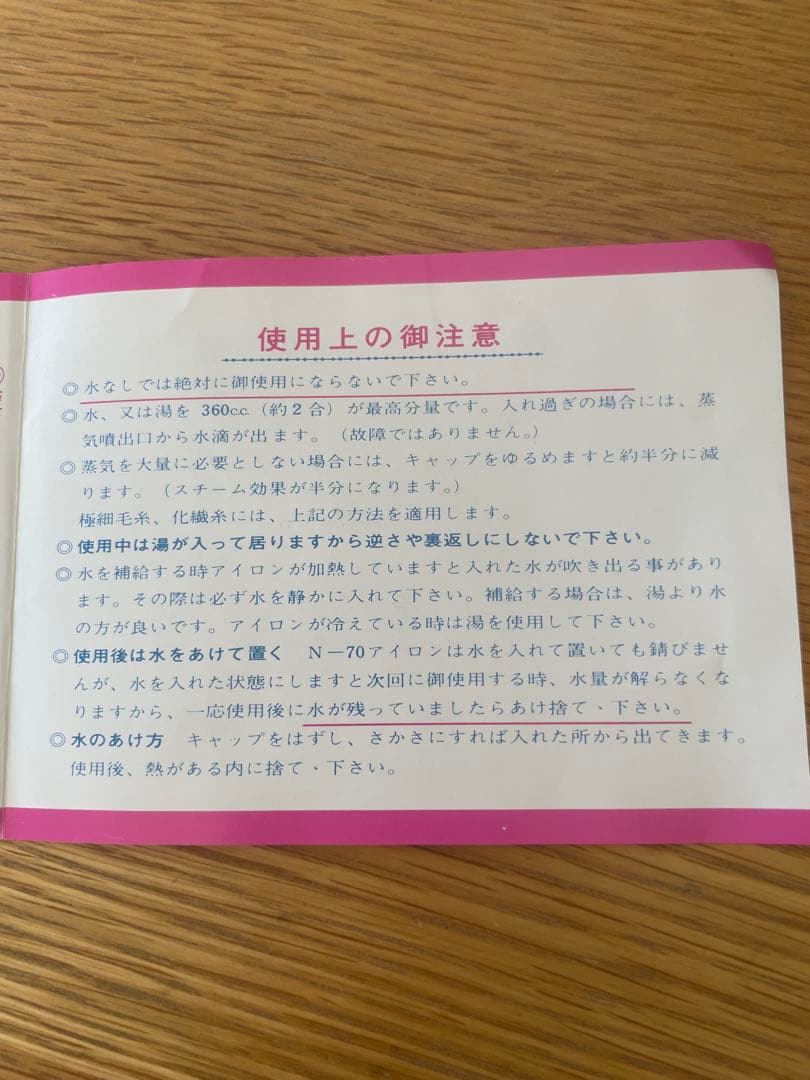 使用上の御注意
◎水なしでは絶対に御使用にならないで下さい。
◎水、又は湯を 360c.c.（約2合）が最高分量です。入れ過ぎの場合には、蒸
気噴出口から水滴が出ます。（故障ではありません。）
◎蒸気を大量に必要としない場合には、キャップをゆるめますと約半分に減
ります。（スチーム効果が半分になります。）
極細毛糸、化繊糸には、上記の方法を適用します。
◎使用中は湯が入って居りますから逆さや裏返しにしないで下さい。
◎水を補給する時アイロンが加熱していますと入れた水が吹き出る事があり
ます。その際は必ず水を静かに入れて下さい。補給する場合は、湯より水
の方が良いです。アイロンが冷えている時は湯を使用して下さい。
◎使用後は水をあけて置く　N－70アイロンは水を入れて置いても錆びませ
んが、水を入れた状態にしますと次回に御使用する時、水量が解らなくな
りますから、一応使用後に水が残っていましたらあけ捨てヽ下さい。
◎水のあけ方　キャップをはずし、さかさにすれば入れた所から出てきます。
使用後、熱がある内に捨てヽ下さい。